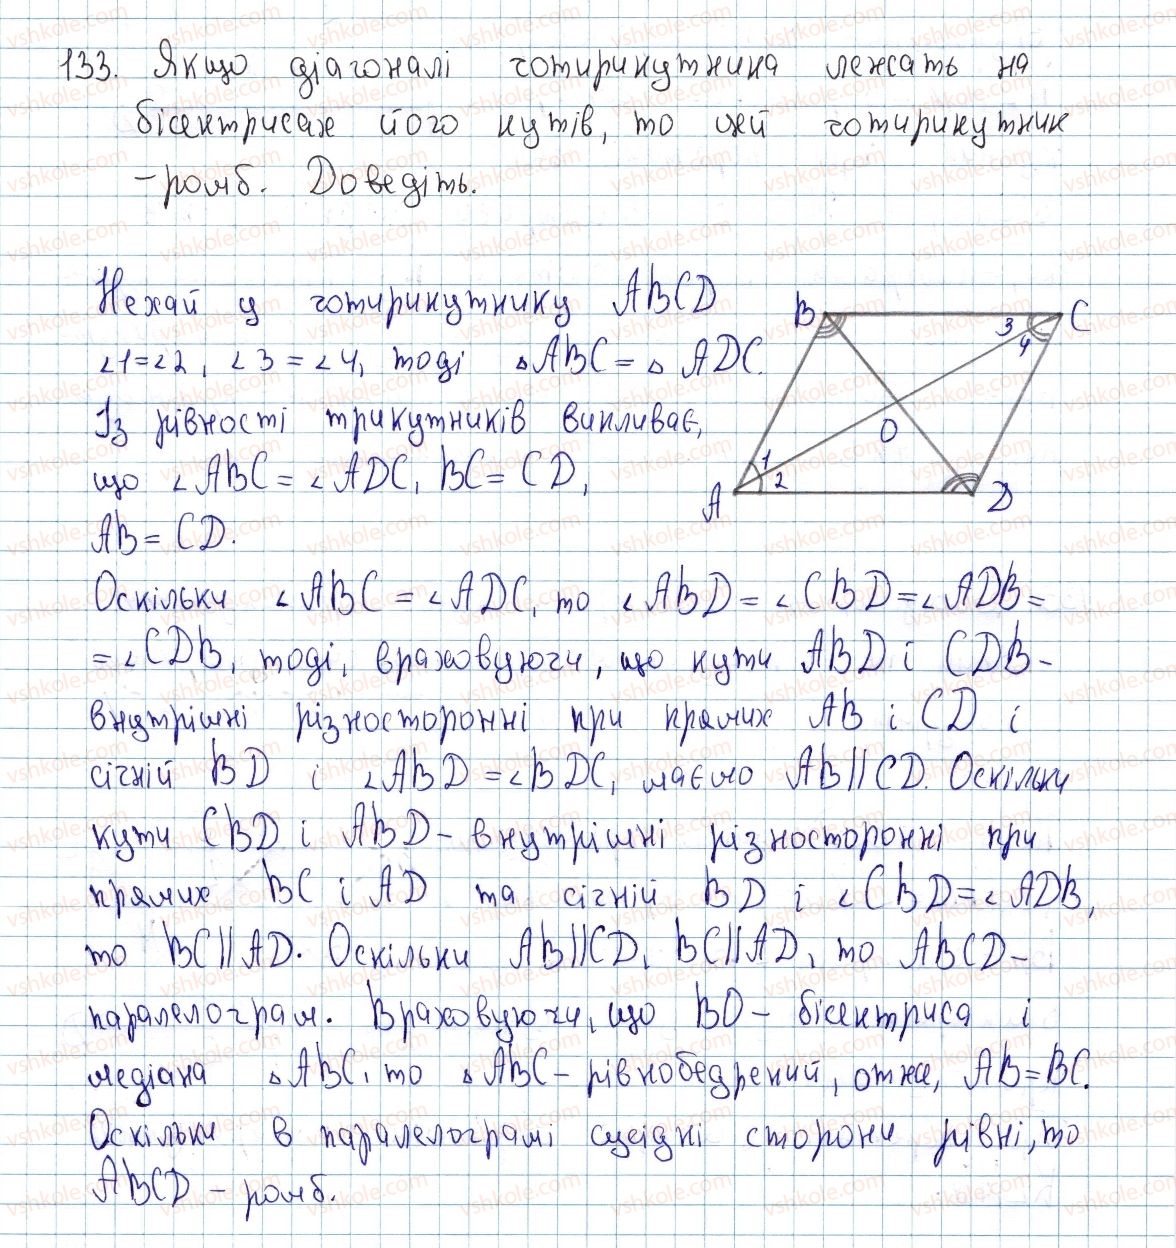 133. Якщо діагоналі чотирикутника лежать на
бісектрисах його кутів, то цей чотирикутник
– ромб. Доведіть.
Нехай у чотирикутнику ABCD
∠1=∠2, ∠3=∠4, тоді ▵ABC=▵ADC.
Із рівності трикутників випливає,
що ∠ABC=∠ADC, BC=CD,
AB=CD.
B
C
3
4
O
1
2
A
D
Оскільки ∠ABC=∠ADC, то ∠ABD=∠CBD=∠ADB=
=∠CDB, тоді, враховуючи, що кути ABD і CDB-
внутрішні різносторонні при прямих AB і CD і
січній BD і ∠ABD=∠BDC, маємо AB||CD. Оскільки
кути CBD і ABD – внутрішні різносторонні при
прямих BC і AD та січній BD і ∠CBD=∠ADB,
то BC||AD. Оскільки AB||CD, BC||AD, то ABCD-
паралелограм. Враховуючи, що BO – бісектриса і
медіана ▵ABC, то ▵ABC – рівнобедрений, отже, AB=BC.
Оскільки в паралелограмі сусідні сторони рівні, то
ABCD – ромб.